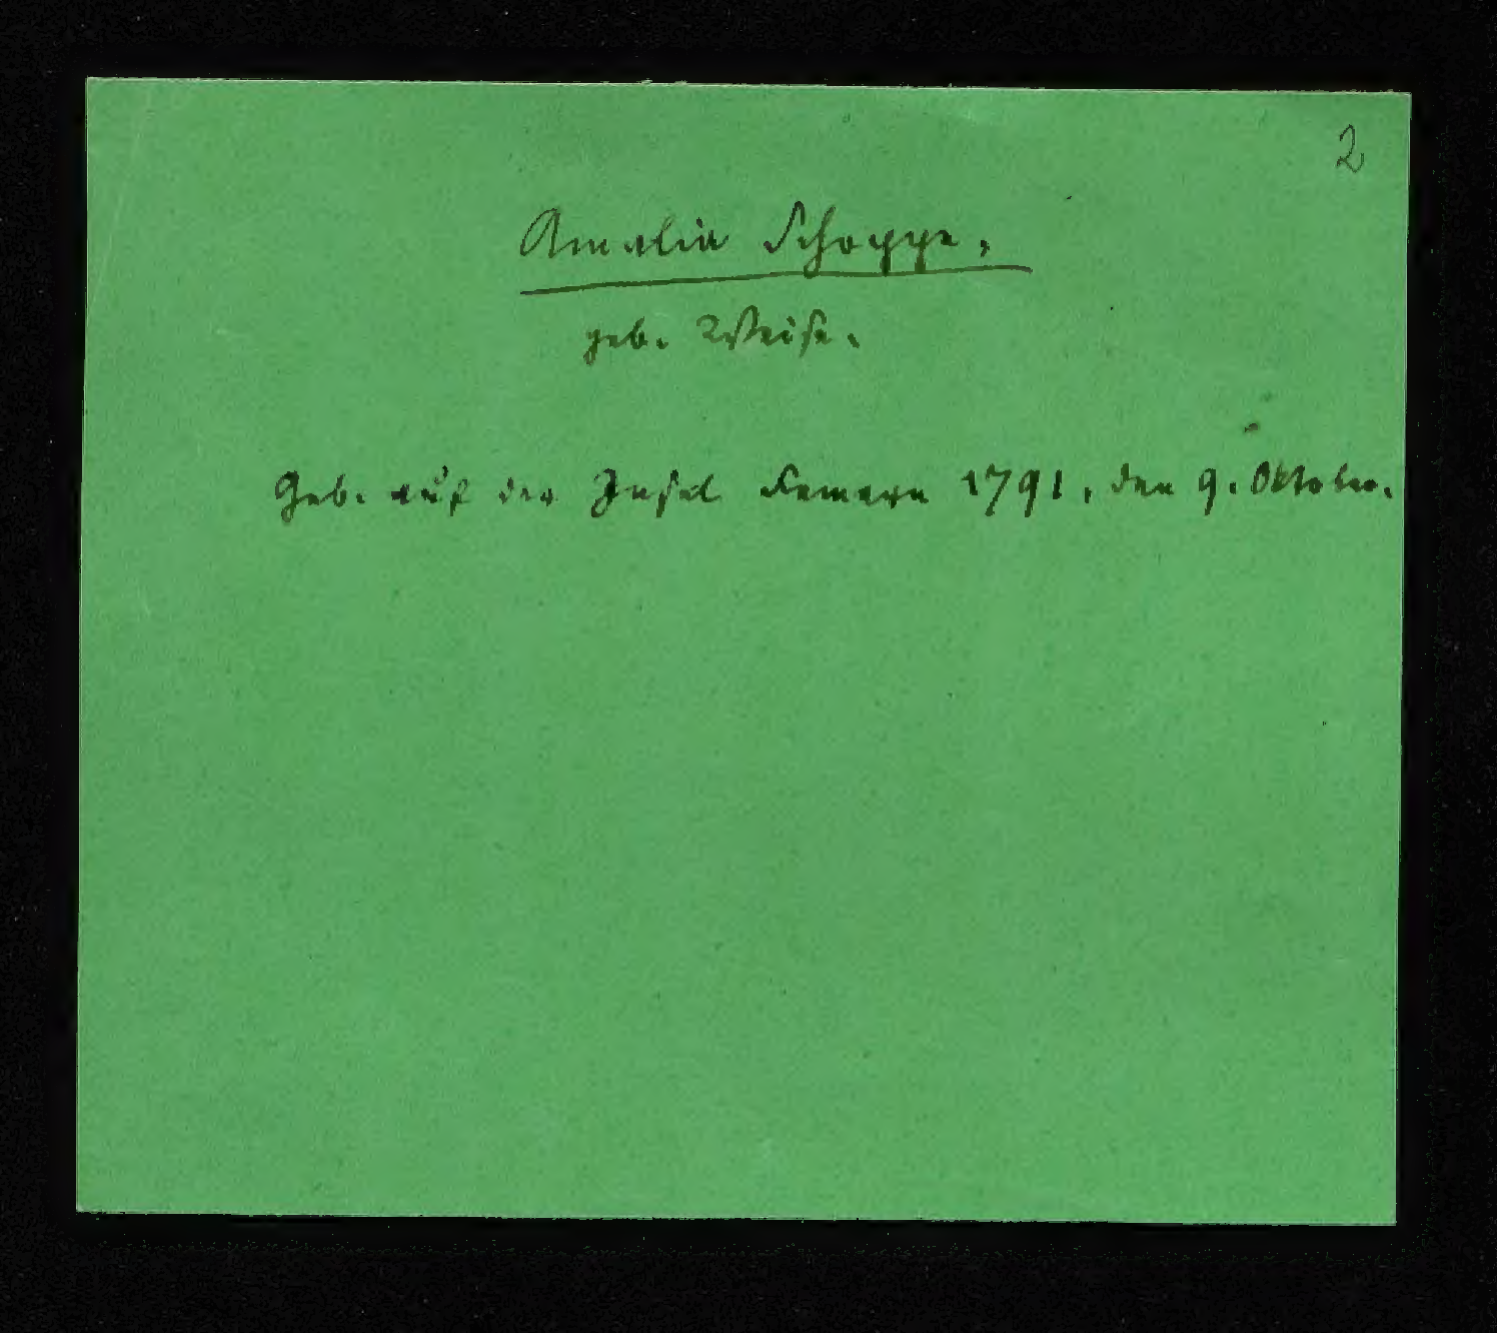 2
Amalia Schoppe,
geb. Weise.
Geb. auf der Insel Femern 1791, den 9. Oktober.